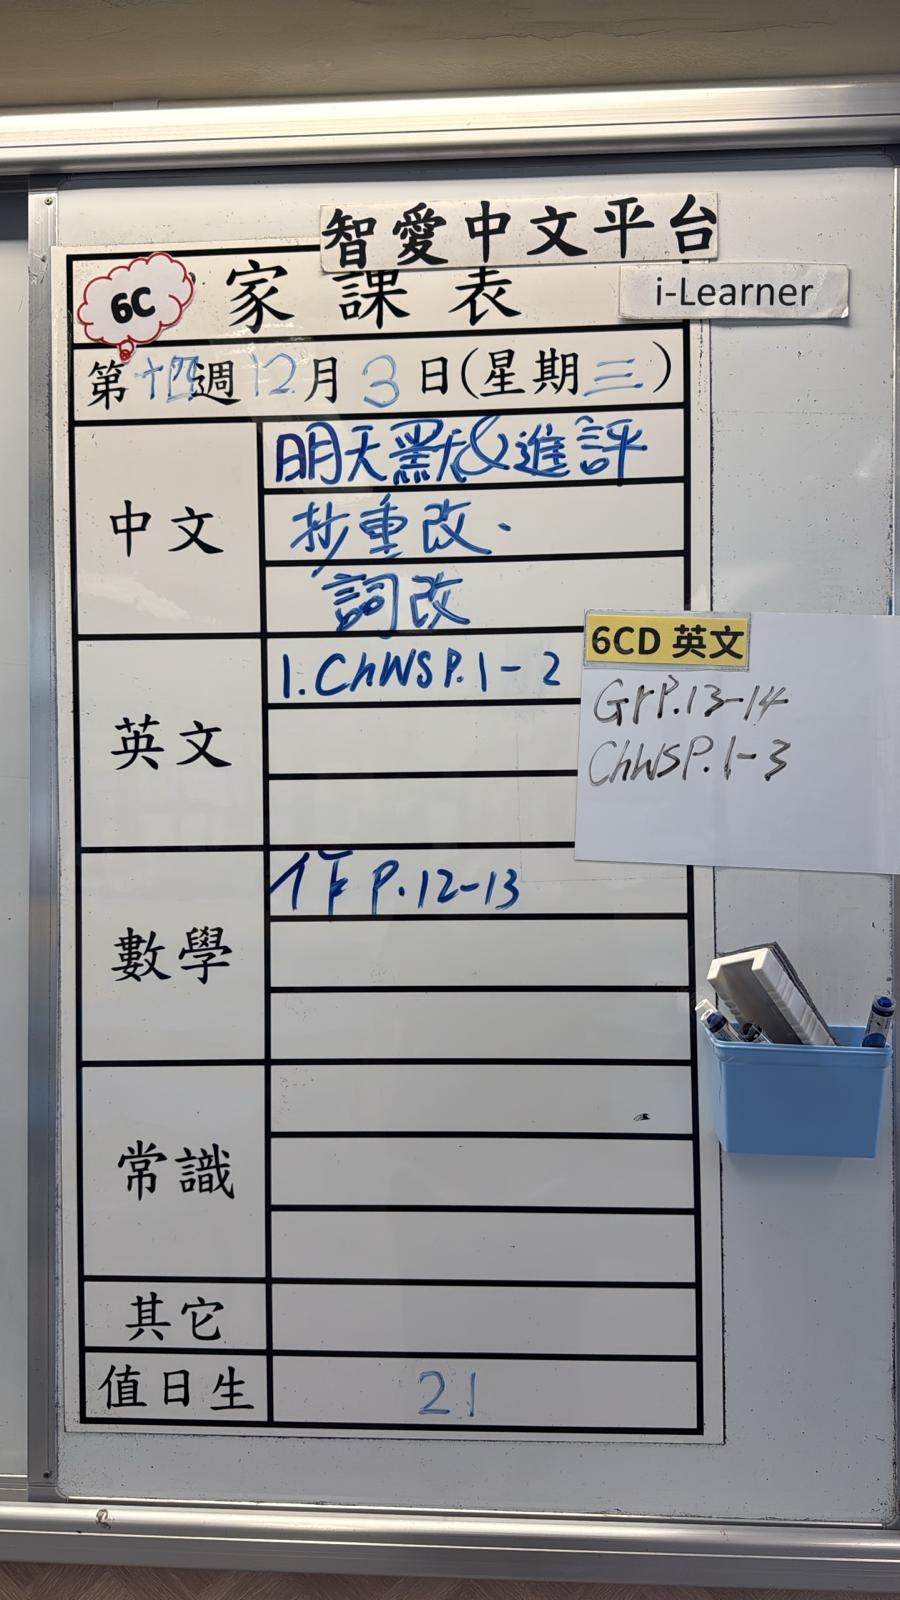 智愛中文平台
i-Learner
6C 家課表
第十四週 12月3日(星期三)
中文
明天默&進評
抄重改.
詞改
英文
1. ChWS P.1-2
6CD 英文
Gr P.13-14
ChWS P.1-3
數學
作 P.12-13
常識
其它
值日生 21